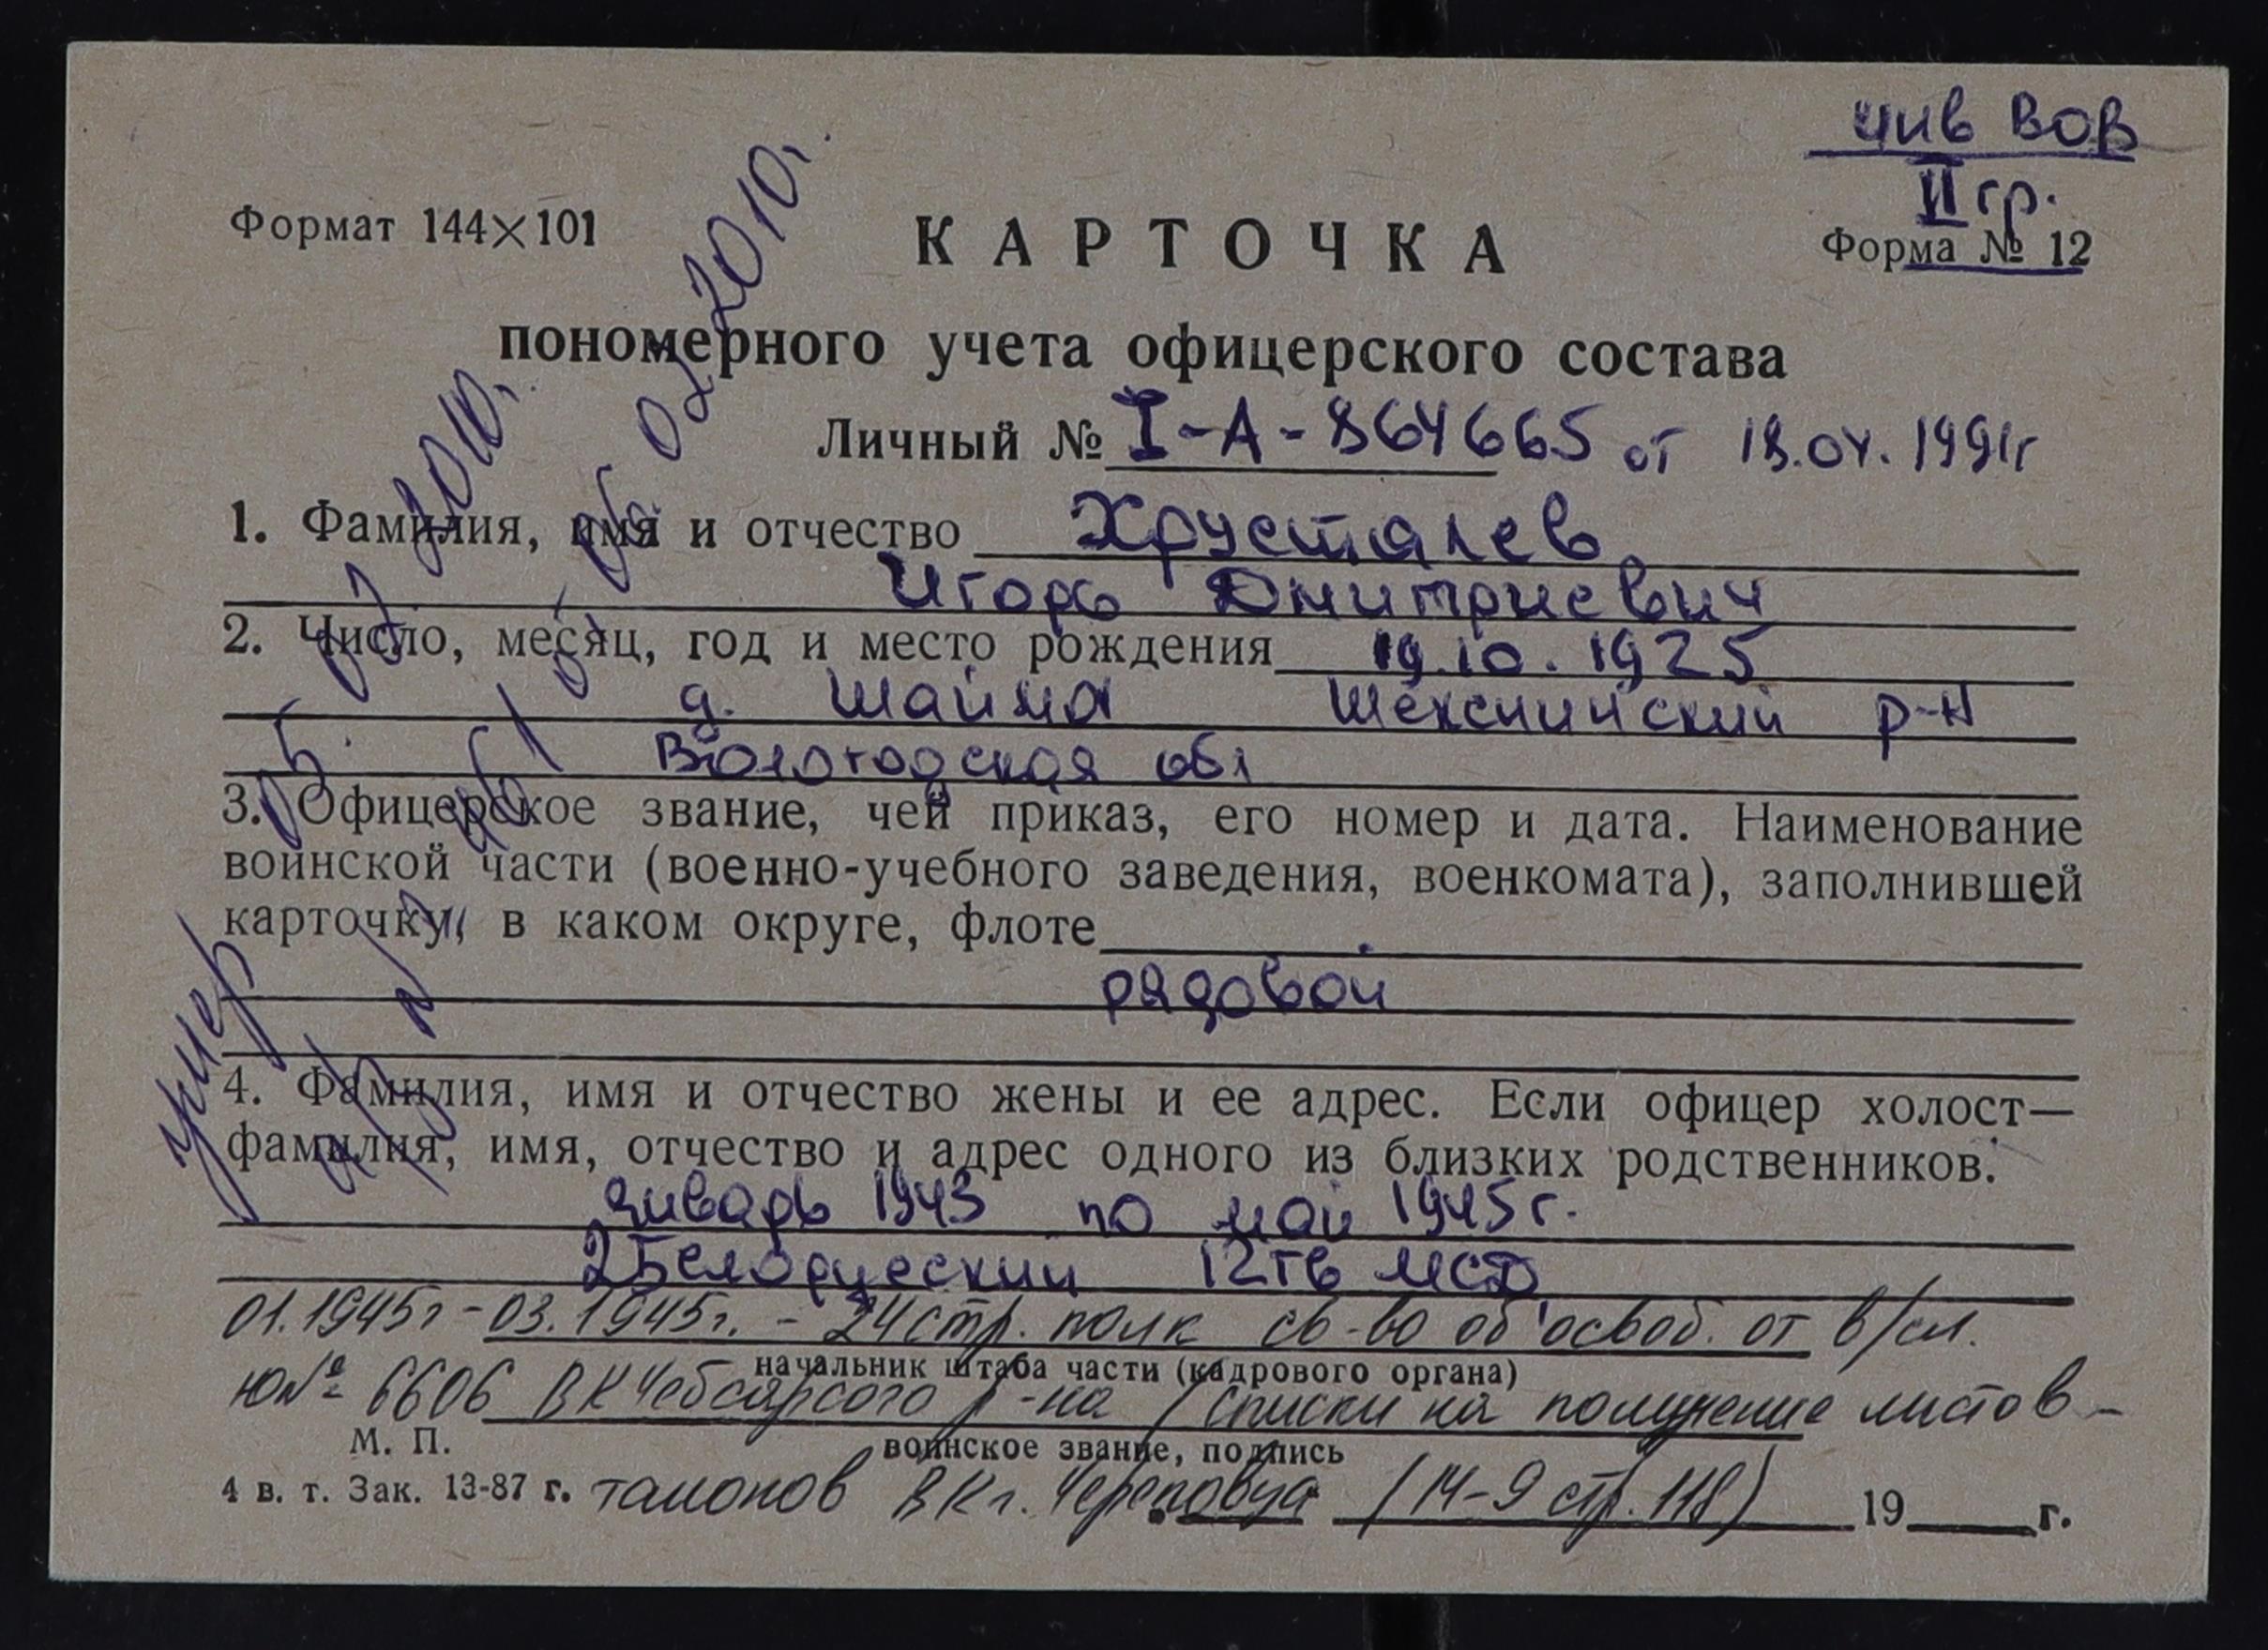 инв ВОВ
II гр.
Формат 144×101
КАРТОЧКА
Форма № 12
пономерного учета офицерского состава
Личный № I-А-864665 от 18.04.1991г
1. Фамилия, имя и отчество Хрусталев
Игорь Дмитриевич
2. Число, месяц, год и место рождения 19.10.1925
д. Шайма Шекснинский р-н
Вологодская обл
3. Офицерское звание, чей приказ, его номер и дата. Наименование
воинской части (военно-учебного заведения, военкомата), заполнившей
карточку, в каком округе, флоте
рядовой
4. Фамилия, имя и отчество жены и ее адрес. Если офицер холост—
фамилия, имя, отчество и адрес одного из близких родственников.
январь 1943 по май 1945г.
2 Белорусский 12 гв мсд
01.1945г - 03.1945г. - 24 стр. полк св-во об'освоб. от в/сл.
начальник штаба части (кадрового органа)
ю№ 6606 ВК Чебсарсого р-на / списки на получение листов-
М. П.
воинское звание, подпись
4 в. т. Зак. 13-87 г. талонов ВК г. Череповца (14-9 стр. 118) 19 г.
умер 05. 02 2010.
02 2010.